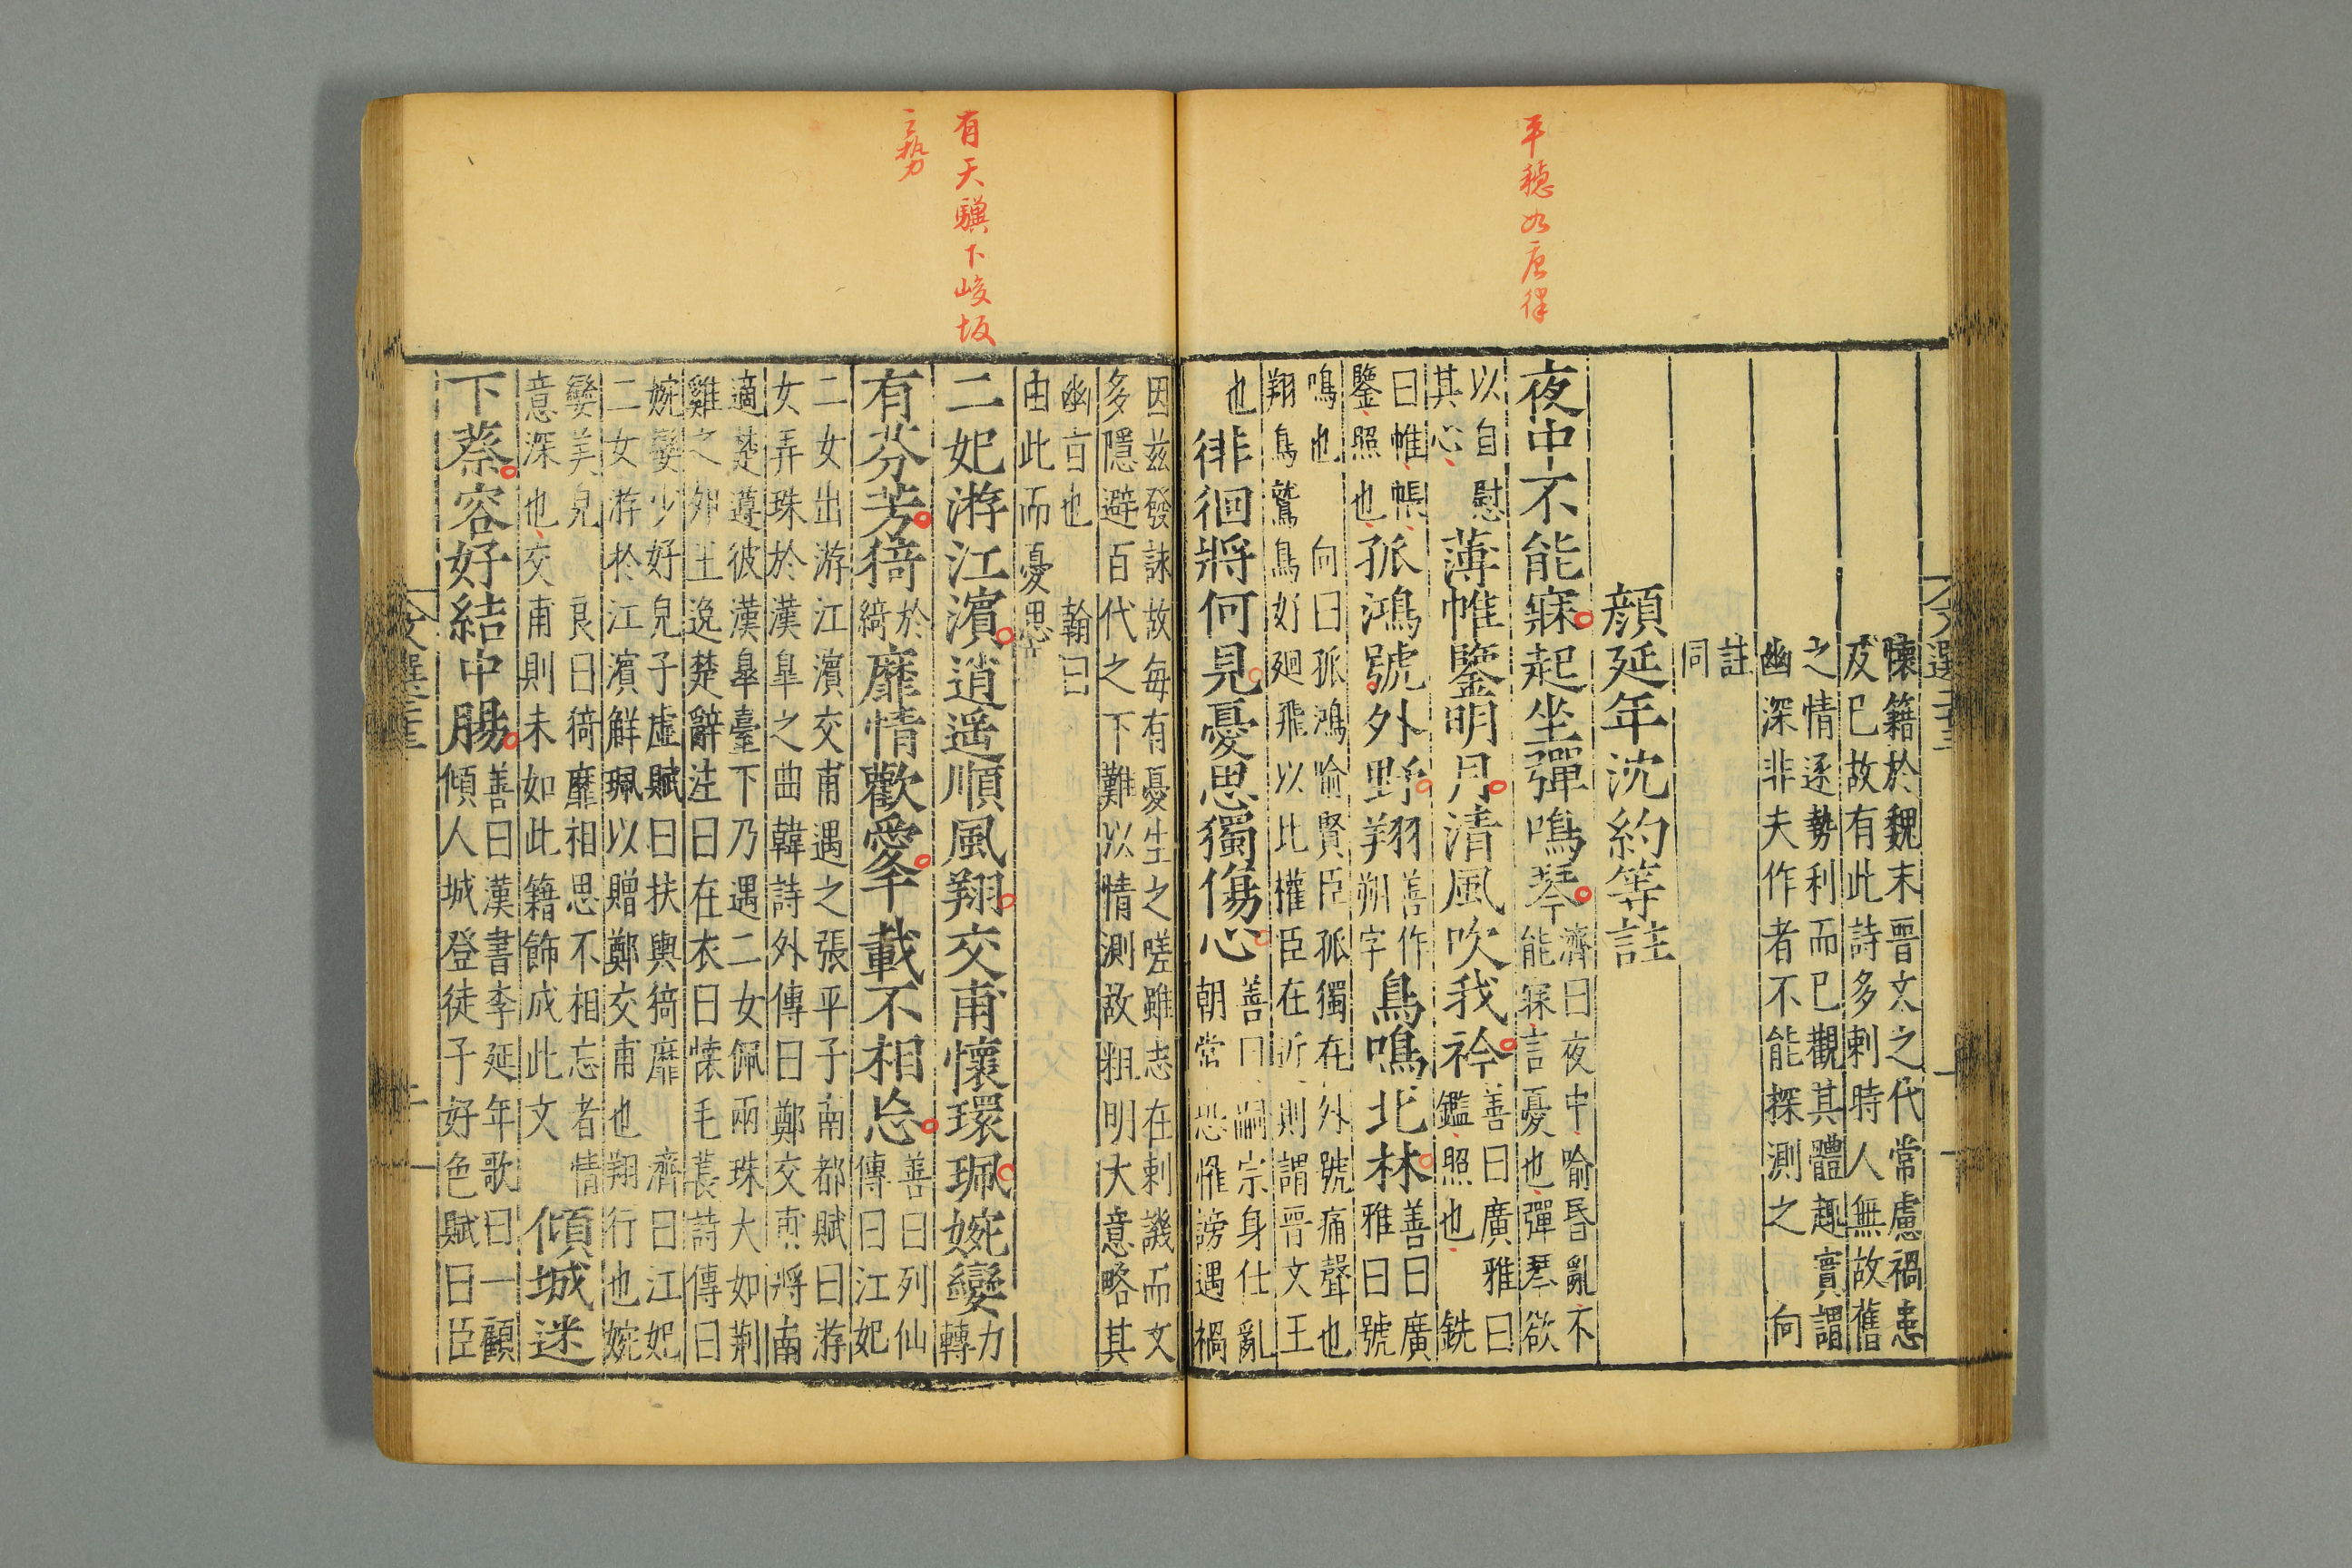 平穩如唐律
懷籍於魏末晉文之代常慮禍患
及已故有此詩多刺時人無故舊
之情逐勢利而已觀其體趣實謂
幽深非夫作者不能探測之 向
註
同
顏延年沈約等註
夜中不能寐起坐彈鳴琴濟曰夜中喻昏亂不能寐言憂也彈琴欲
以自慰其心薄帷鑒明月清風吹我衿善曰廣雅曰鑑照也 銑
曰帷帳鑒照也孤鴻號外野翔善作朔字鳥鳴北林善曰廣雅曰號
鳴也 向曰孤鴻喻賢臣孤獨在外號痛聲也
翔鳥鷙鳥好廻飛以比權臣在近則謂晉文王
也徘徊將何見憂思獨傷心善曰嗣宗身仕亂朝常恐罹謗遇禍
有天驥下峻坂
之勢
因兹發詠故每有憂生之嗟雖志在刺譏而文
多隱避百代之下難以情測故粗明大意略其
幽旨也 翰曰
由此而憂思
二妃游江濱逍遥順風翔交甫懷環珮婉孌力轉
有芬芳猗於綺靡情歡愛千載不相忘善曰列仙傳曰江妃
二女出游江濱交甫遇之張平子南都賦曰游
女弄珠於漢皐之曲韓詩外傳曰鄭交甫將南
適楚遵彼漢皐臺下乃遇二女佩兩珠大如荆
雞之卵王逸楚辭注曰在衣曰懷毛萇詩傳曰
婉孌少好皃子虛賦曰扶輿猗靡 濟曰江妃
二女游於江濱解珮以贈鄭交甫也翔行也婉
孌美皃 良曰猗靡相思不相忘者情
意深也交甫則未如此籍飾成此文傾城迷
下蔡容好結中腸善曰漢書李延年歌曰一顧傾人城登徒子好色賦曰臣